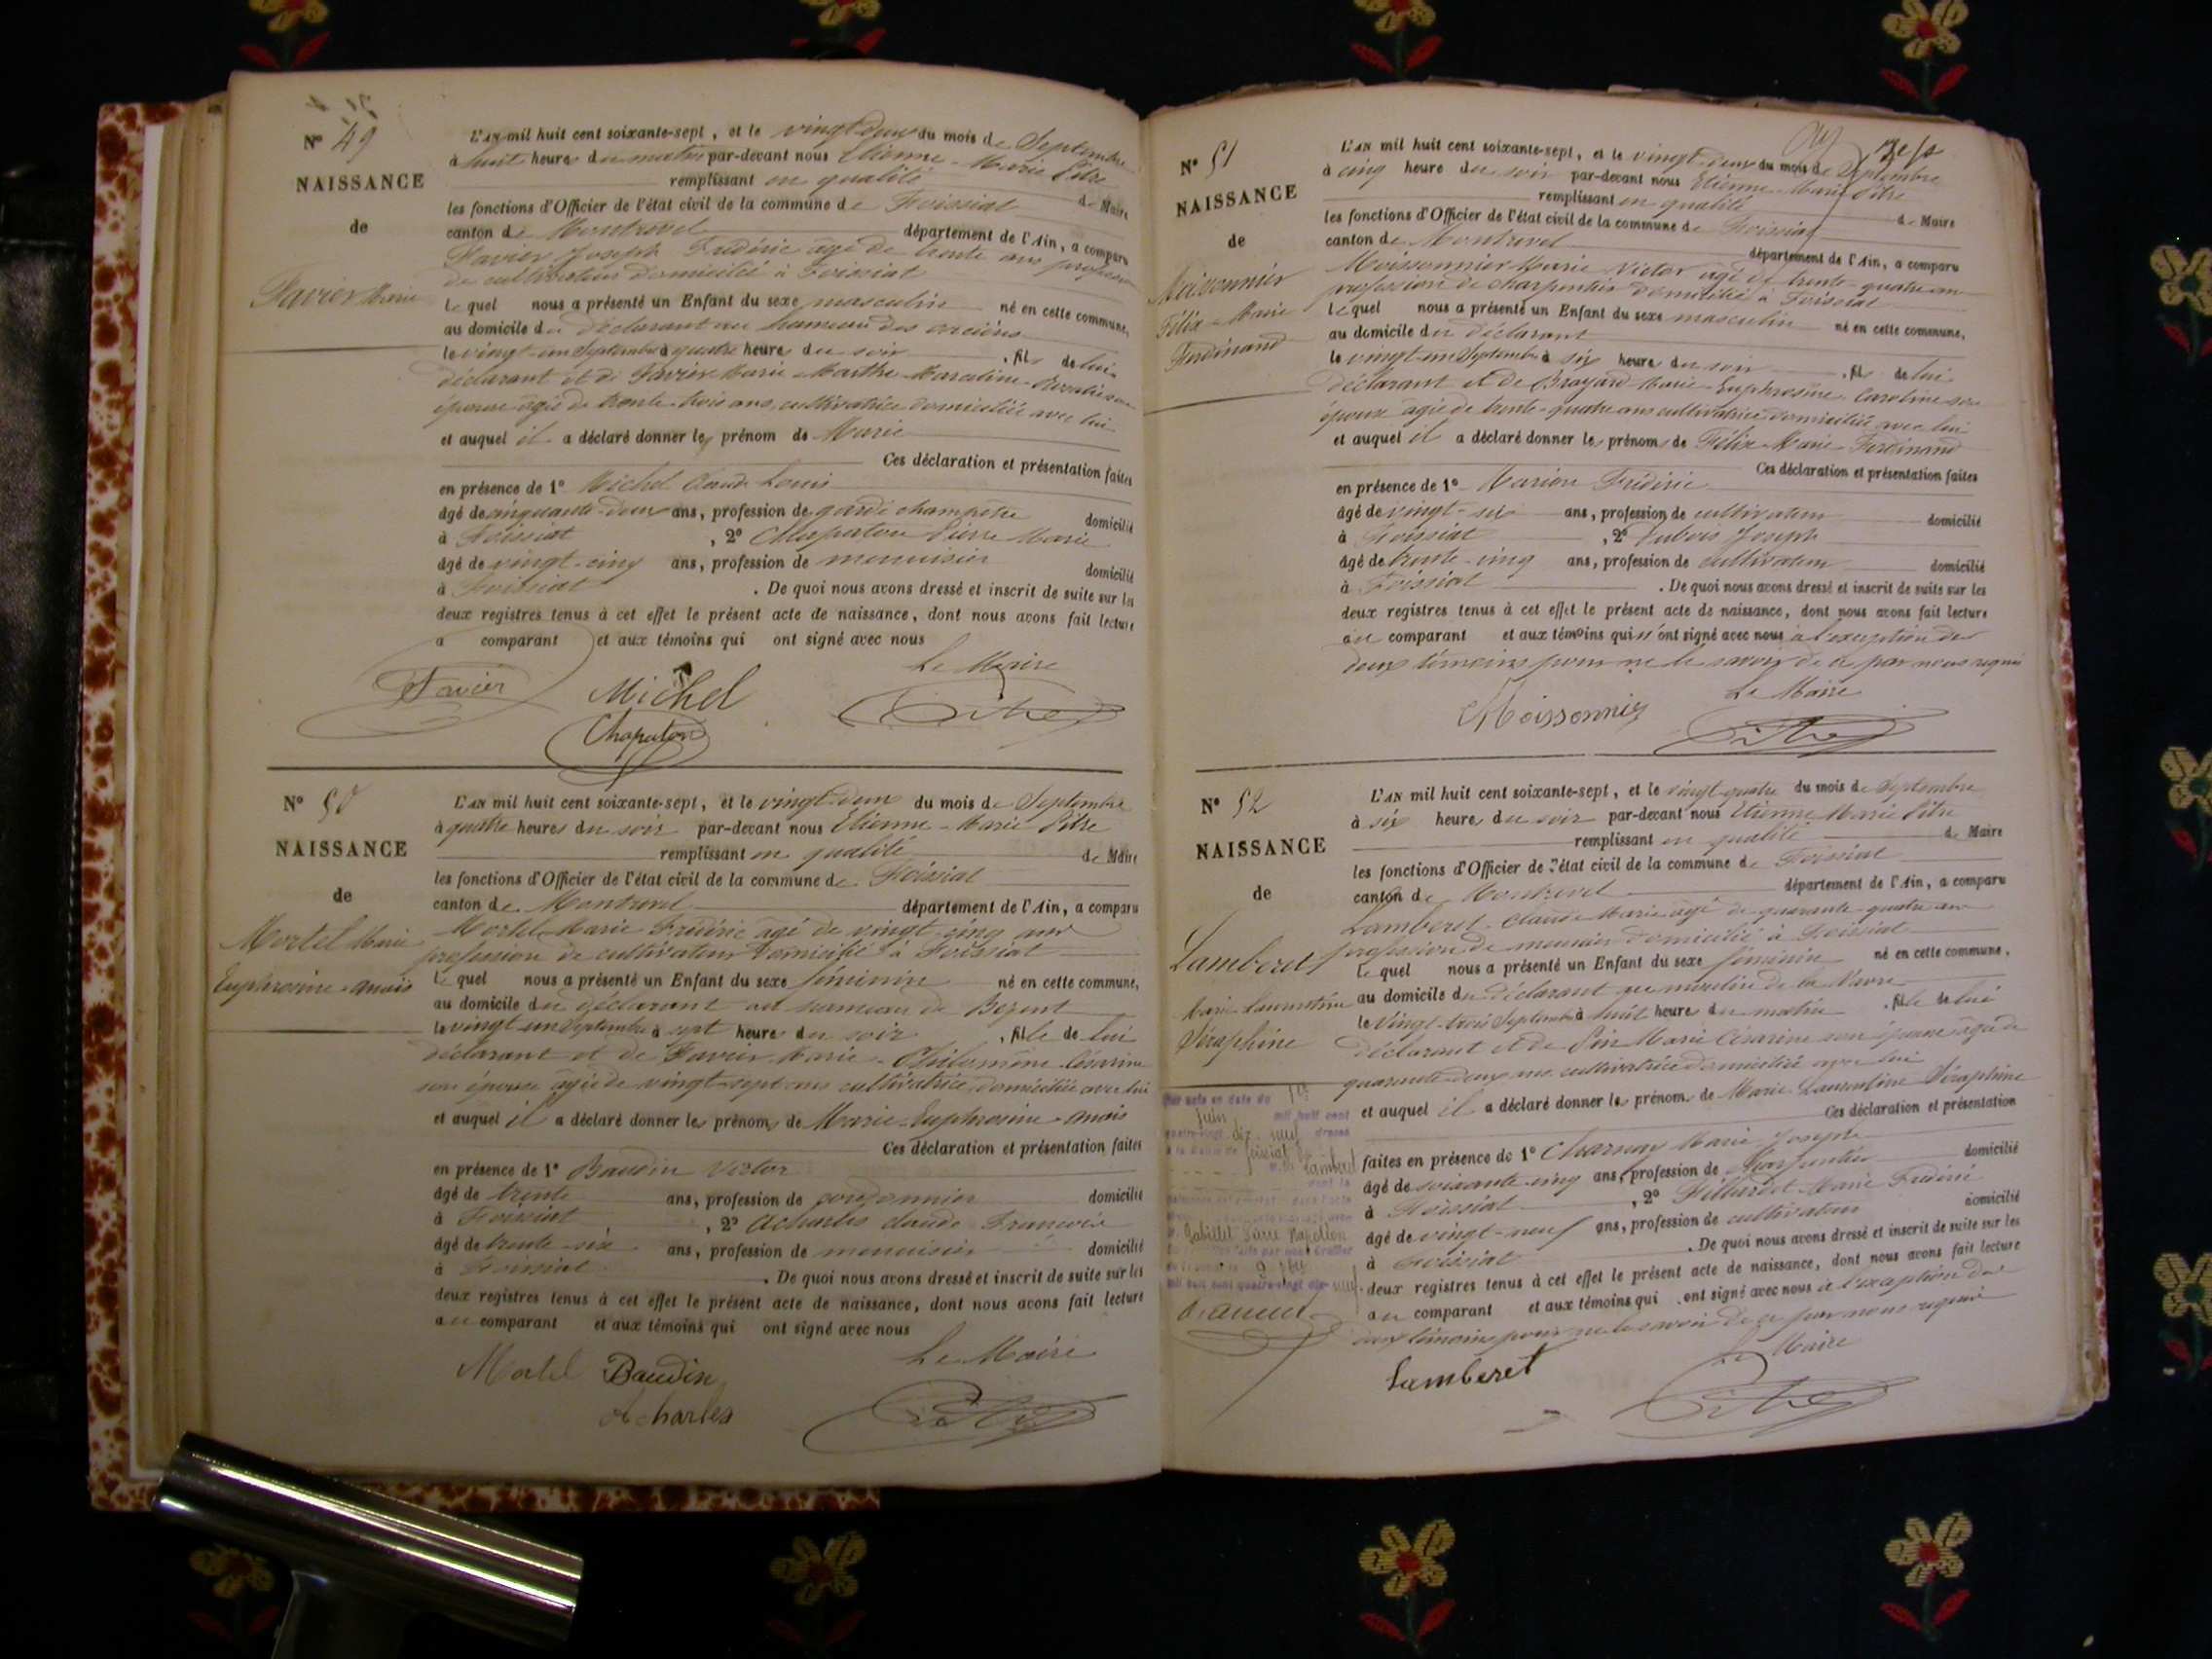 N° 49
NAISSANCE
de
Favier Marie
L'AN mil huit cent soixante-sept, et le vingt deux du mois de Septembre
à huit heures du matin par-devant nous Etienne-Marie Pitre
remplissant en qualité de Maire
les fonctions d'Officier de l'état civil de la commune de Foissiat
canton de Montrevel département de l'Ain, a comparu
Favier Joseph Frédéric âgé de trente ans profession
de cultivateur domicilié à Foissiat
Lequel nous a présenté un Enfant du sexe masculin né en cette commune,
au domicile du déclarant au hameau des
le vingt-un Septembre à quatre heures du soir, fils de lui
déclarant et de Favier Marie-Marthe-Marceline- son
épouse âgée de trente-trois ans, cultivatrice domiciliée avec lui
et auquel il a déclaré donner les prénom de Marie
Ces déclaration et présentation faites
en présence de 1° Michel Claude Louis
âgé de cinquante-deux ans, profession de garde champêtre domicilié
à Foissiat, 2° Chapaton Pierre Marie
âgé de vingt-cinq ans, profession de menuisier domicilié
à Foissiat. De quoi nous avons dressé et inscrit de suite sur les
deux registres tenus à cet effet le présent acte de naissance, dont nous avons fait lecture
a comparant et aux témoins qui ont signé avec nous
Le Maire
Favier Michel Pitre
Chapaton
N° 50
NAISSANCE
de
Mortel Marie
Euphrosine-Anaïs
L'AN mil huit cent soixante-sept, et le vingt-deux du mois de Septembre
à quatre heures du soir par-devant nous Etienne-Marie Pitre
remplissant en qualité de Maire
les fonctions d'Officier de l'état civil de la commune de Foissiat
canton de Montrevel département de l'Ain, a comparu
Mortel Marie Frédéric âgé de vingt-cinq ans
profession de cultivateur domicilié à Foissiat
Lequel nous a présenté un Enfant du sexe féminin né en cette commune,
au domicile du déclarant au hameau de Bezent
le vingt-un Septembre à sept heures du soir, fille de lui
déclarant et de Favier Marie-Philomène Césarine
son épouse âgée de vingt-sept ans cultivatrice domiciliée avec lui
et auquel il a déclaré donner les prénoms de Marie-Euphrosine-Anaïs
Ces déclaration et présentation faites
en présence de 1° Baudin Victor
âgé de trente ans, profession de cordonnier domicilié
à Foissiat, 2° Acharles Claude François
âgé de trente-six ans, profession de menuisier domicilié
à Foissiat. De quoi nous avons dressé et inscrit de suite sur les
deux registres tenus à cet effet le présent acte de naissance, dont nous avons fait lecture
au comparant et aux témoins qui ont signé avec nous
Le Maire
Mortel Baudin Pitre
Acharles
N° 51
NAISSANCE
de
Moissonnier
Félix-Marie
Ferdinand
L'AN mil huit cent soixante-sept, et le vingt-deux du mois de Septembre
à cinq heure du soir par-devant nous Etienne-Marie Pitre
remplissant en qualité de Maire
les fonctions d'Officier de l'état civil de la commune de Foissiat
canton de Montrevel département de l'Ain, a comparu
Moissonnier Marie Victor âgé de trente-quatre ans
profession de charpentier domicilié à Foissiat
Lequel nous a présenté un Enfant du sexe masculin né en cette commune,
au domicile du déclarant
le vingt-un Septembre à six heure du soir, fils de lui
déclarant et de Broyard Marie-Euphrosine Caroline son
épouse âgée de trente-quatre ans cultivatrice domiciliée avec lui
et auquel il a déclaré donner les prénoms de Félix-Marie-Ferdinand
Ces déclaration et présentation faites
en présence de 1° Marion Frédéric
âgé de vingt-six ans, profession de cultivateur domicilié
à Foissiat, 2° Dubois Joseph
âgé de trente-cinq ans, profession de cultivateur domicilié
à Foissiat. De quoi nous avons dressé et inscrit de suite sur les
deux registres tenus à cet effet le présent acte de naissance, dont nous avons fait lecture
au comparant et aux témoins qui n'ont signé avec nous à l'exception des
deux témoins pour ne le savoir de ce par nous requis
Le Maire
Moissonnier Pitre
N° 52
NAISSANCE
de
Lamberet
Marie Laurentine
Séraphine
L'AN mil huit cent soixante-sept, et le vingt-quatre du mois de Septembre
à six heures du soir par-devant nous Etienne Marie Pitre
remplissant en qualité de Maire
les fonctions d'Officier de l'état civil de la commune de Foissiat
canton de Montrevel département de l'Ain, a comparu
Lamberet Claude Marie âgé de quarante-quatre ans
profession de meunier domicilié à Foissiat
Lequel nous a présenté un Enfant du sexe féminin né en cette commune,
au domicile du déclarant au moulin de la Vavre
le Vingt-trois Septembre à huit heures du matin, fille de lui
déclarant et de Marie Césarine son épouse âgée de
quarante-deux ans cultivatrice domiciliée avec lui
et auquel il a déclaré donner les prénoms de Marie Laurentine Séraphine
Ces déclaration et présentation
faites en présence de 1° Charnay Marie-Joseph
âgé de soixante-cinq ans, profession de charpentier domicilié
à Foissiat, 2° Marie Frédéric
âgé de vingt-neuf ans, profession de cultivateur domicilié
à Foissiat. De quoi nous avons dressé et inscrit de suite sur les
deux registres tenus à cet effet le présent acte de naissance, dont nous avons fait lecture
au comparant et aux témoins qui ont signé avec nous à l'exception des
deux témoins pour ne le savoir de ce par nous requis
Le Maire
Lamberet Pitre
Par acte en date du 1er
Juin mil huit cent
quatre-vingt dix-neuf dressé
à la mairie de Foissiat
Lamberet